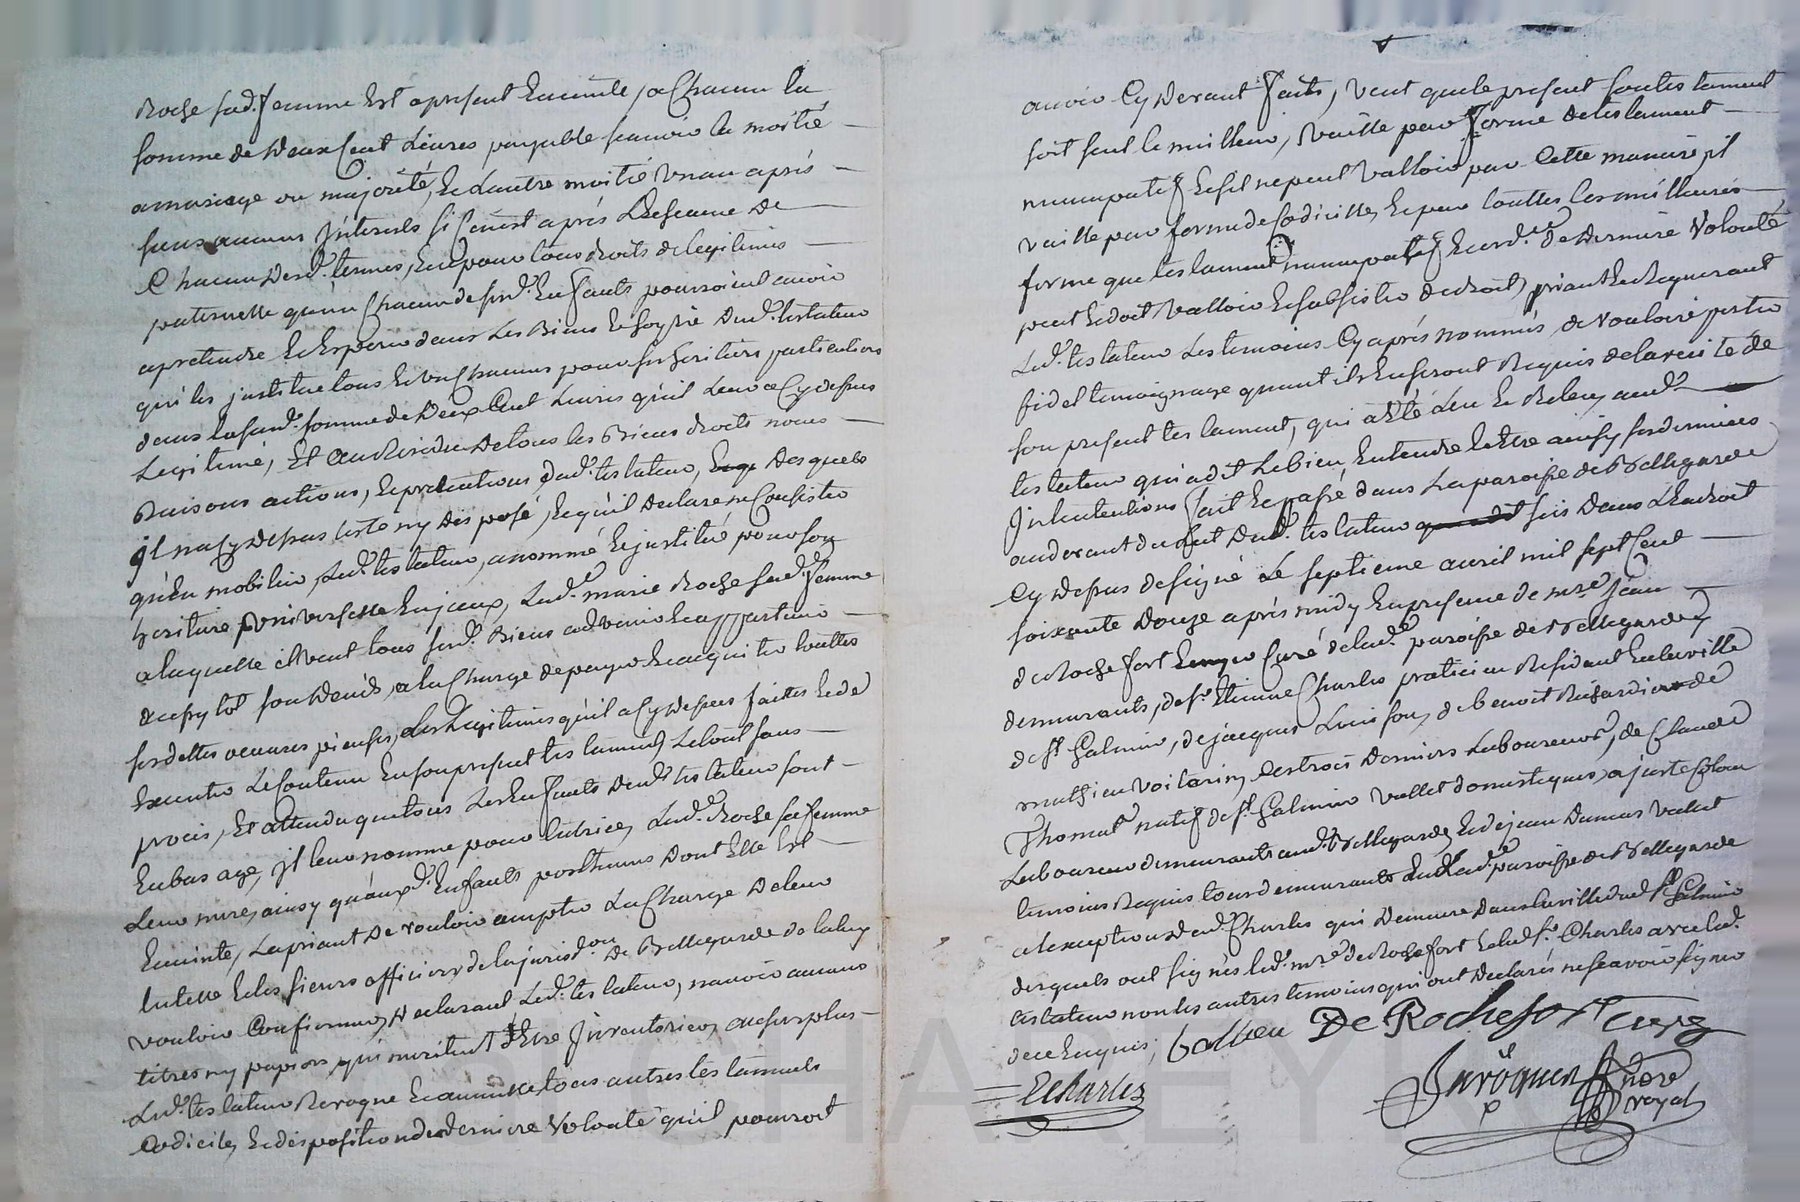 Roche sad. femme est apresent Enceinte, a Chacun la
somme de deux Cent Livres payable scavoir la moitié
a mariage ou majorité, Et L'autre moitié un an après
sans aucuns Jnterests si Ce n'est après L'escance de
Chacun desd. termes, Et ce pour tous droits de legitimes
paternelle qu'un Chacun de sesd. Enfants pourroient avoir
a pretendre Et Esperer dans Les Biens Et hoyrie dud. testateur
qu'il les jnstitue tous Et un Chacuns pour ses heritiers particuliers
dans lasusd. somme de Deux Cent Livres qu'il Leur a Cy dessus
Legitimé, Et au Residu de tous les Biens droits noms
Raisons actions, Et pretentions dud. testateur, desquels
jl na Cy dessus testé ny disposé, Et qu'il declare ne Consister
qu'En mobilier, Led. testateur, a nommé Et jnstitué pour son
heritiere universelle Lad. marie Roche sad. femme
a laquelle il veut tous sesd. Biens advenir Et appartenir
aussytôt son deceds, a la Charge de payer Et acquiter touttes
ses dettes oeuvres pieuses, Les Legitimes qu'il a Cy dessus faittes Et de
Executer Le Contenu En son present testament, Le tout sans
procès, Et attendu que tous Les Enfants dud. testateur sont
En bas age, jl leur nomme pour tutrice, Lad. Roche sa femme
Leur mere, ainsy qu'aux d. Enfants posthumes dont Elle Est
Enceinte, La priant de vouloir accepter La Charge de leur
tutelle Et les sieurs officiers de la jurisd.on de Bellegarde de la luy
vouloir Confirmer, declarant Led. testateur, n'avoir aucuns
titres ny papiers, qui meritent d'Etre Jnventoriés, au surplus
Led. testateur Revoque Et annulle tous autres testaments
Codiciles, Et dispositions de derniere Volonté qu'il pourroit
avoir Cy devant faits, veut que le present son testament
soit seul le meilleur, vaille par forme de testament
nuncupatif Et s'il ne peut valloir par Cette maniere jl
vaille par forme de Codicille, Et par touttes les meilleures
forme que testament nuncupatif Et ord.ce de derniere Volonté
peut Et doit valloir Et subsister de droit, priant Et Requerant
Led. testateur Les temoins Cy après nommés, de vouloir porter
fidel temoignage quant ils En seront Requis de la verité de
son present testament, qui a Eté Leu Et Releu, aud.
testateur qui a dit Le bien Entendre Et Etre ainsy ses dernieres
Jntentions fait Et passé dans La paroisse de Bellegarde
au devant du Lit dud. testateur sis dans L'Endroit
Cy dessus designé Le septieme avril mil sept Cent
soixante douze après midy En presence de mre Jean
de Rochefort Curé de lad. paroisse de Bellegarde y
demeurants, de sr Etienne Charles praticien Residant En la ville
de St Galmier, de jacques de benoit de
mathieu Les trois derniers Laboureurs, de Claude
Thomas natif de St Galmier vallet domestiques,
Laboureur demeurants aud. Bellegarde, Et de jean Dumas vallet
temoins Requis tous demeurants En lad. paroisse de Bellegarde
a L'exception dud. Charles qui demeure dans la ville dud. St Galmier
desquels ont signés led. mre de Rochefort Et led. sr Charles avec led.
testateur non les autres temoins qui ont declarés ne scavoir signer
de ce Enquis,
De Rochefort Curé
E Charles
Javôques Nore
royal